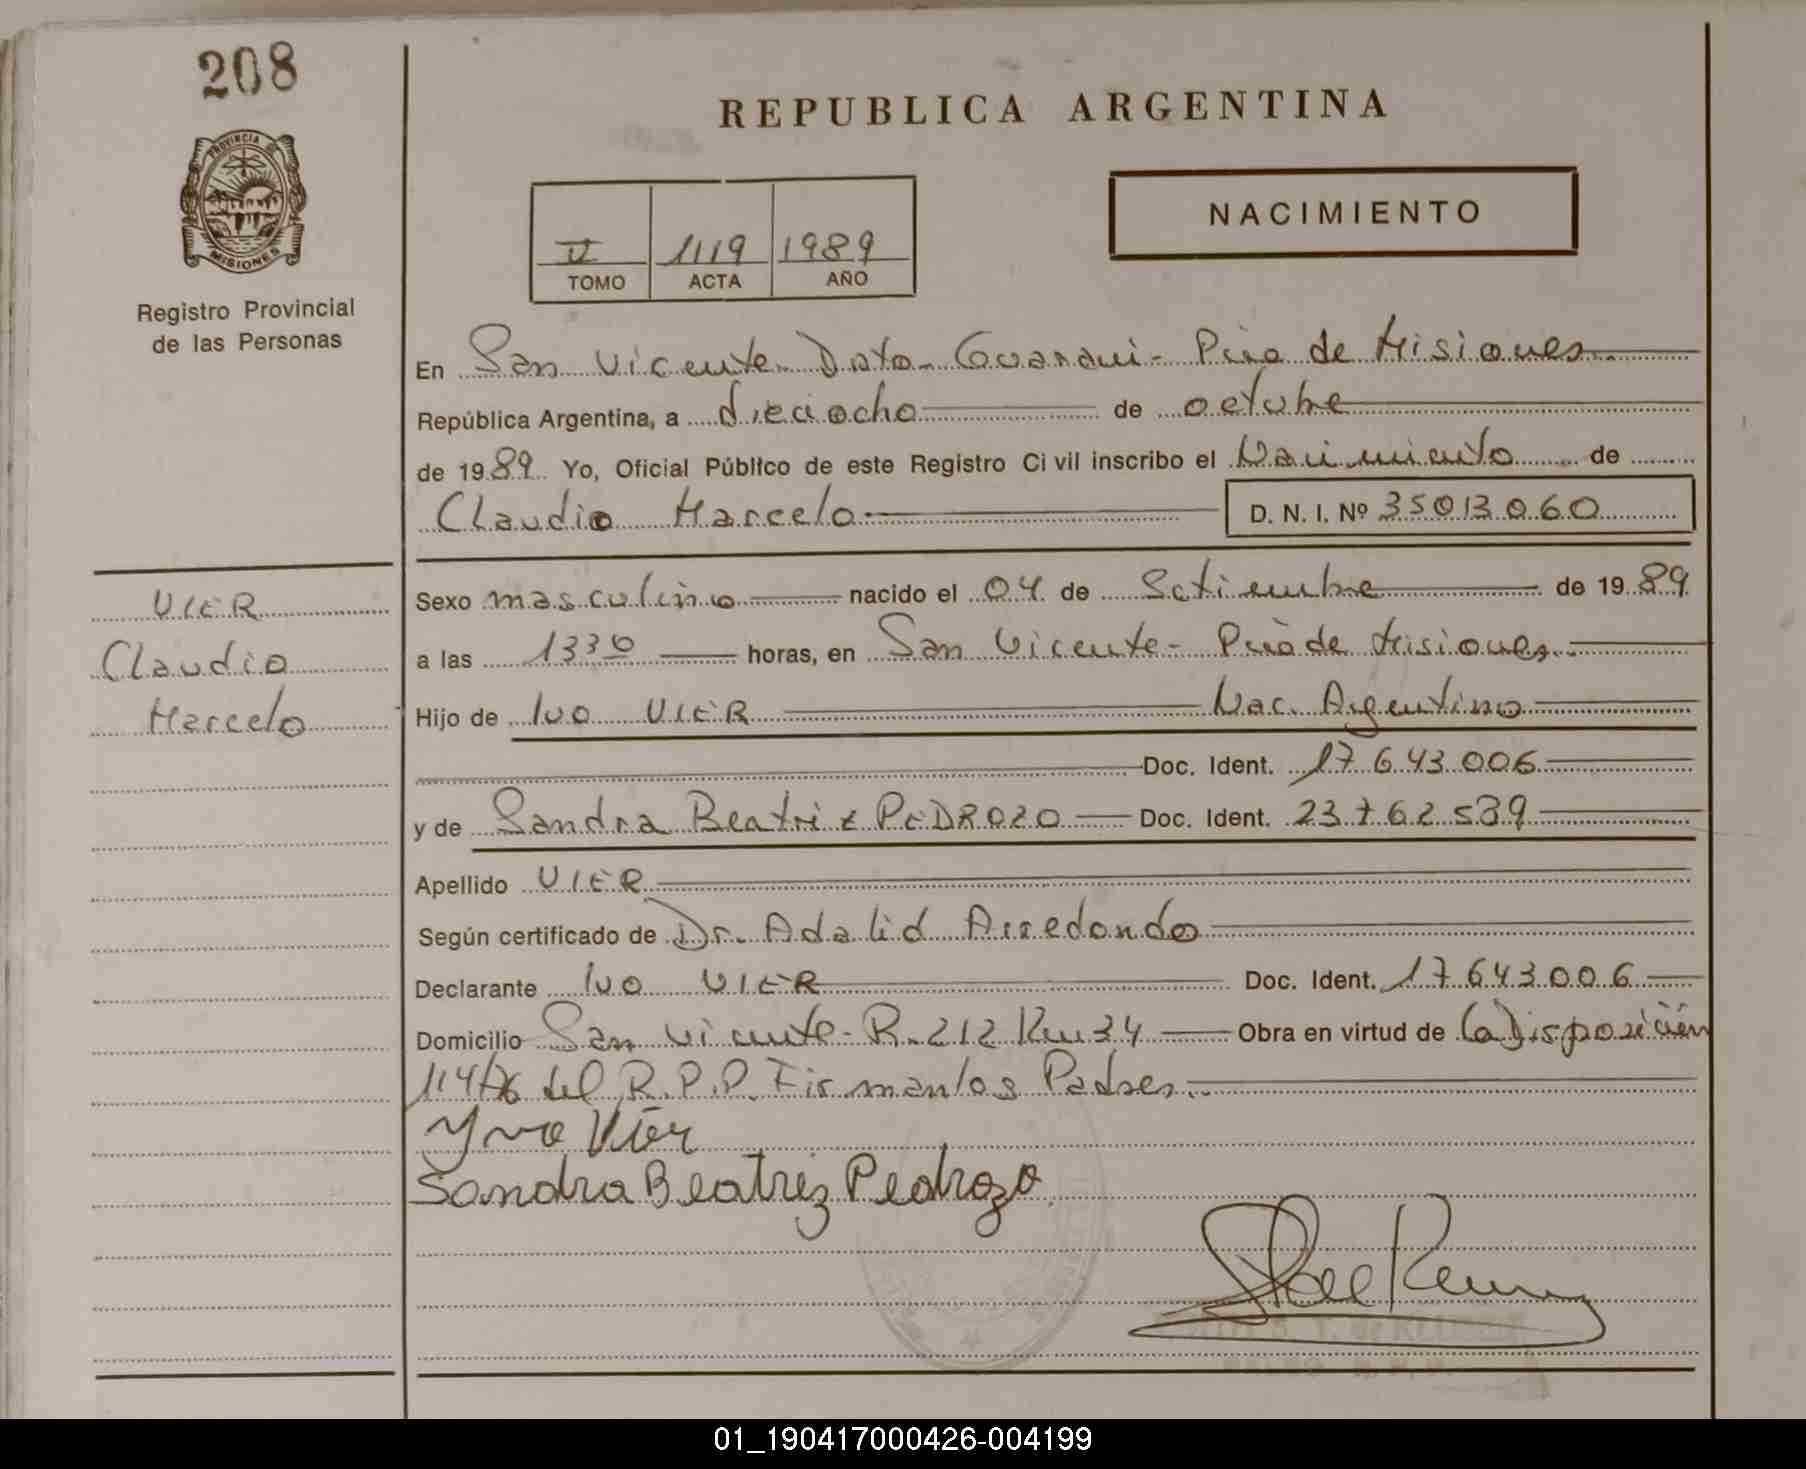 208
REPUBLICA ARGENTINA
PROVINCIA DE
MISIONES
Registro Provincial
de las Personas
II 1119 1989
TOMO ACTA AÑO
NACIMIENTO
En San Vicente Dpto. Guaraní - Pcia de Misiones..
República Argentina, a dieciocho de octubre
de 1989 Yo, Oficial Público de este Registro Civil inscribo el Nacimiento de
Claudio Marcelo D. N. I. Nº 35013060
VIER
Claudio
Marcelo
Sexo masculino nacido el 04 de Setiembre de 1989
a las 1330 horas, en San Vicente - Pcia de Misiones..
Hijo de Ivo VIER Nac. Argentino
Doc. Ident. 17 643 006
y de Sandra Beatriz PEDROZO Doc. Ident. 23 762 539
Apellido VIER
Según certificado de Dr. Adalid Arredondo
Declarante Ivo VIER Doc. Ident. 17 643 006
Domicilio San Vicente - R. 212 Km 34 Obra en virtud de la Disposición
114/76 del R.P.P. Firman los Padres..
Yvo Vier
Sandra Beatriz Pedrozo
01_190417000426-004199